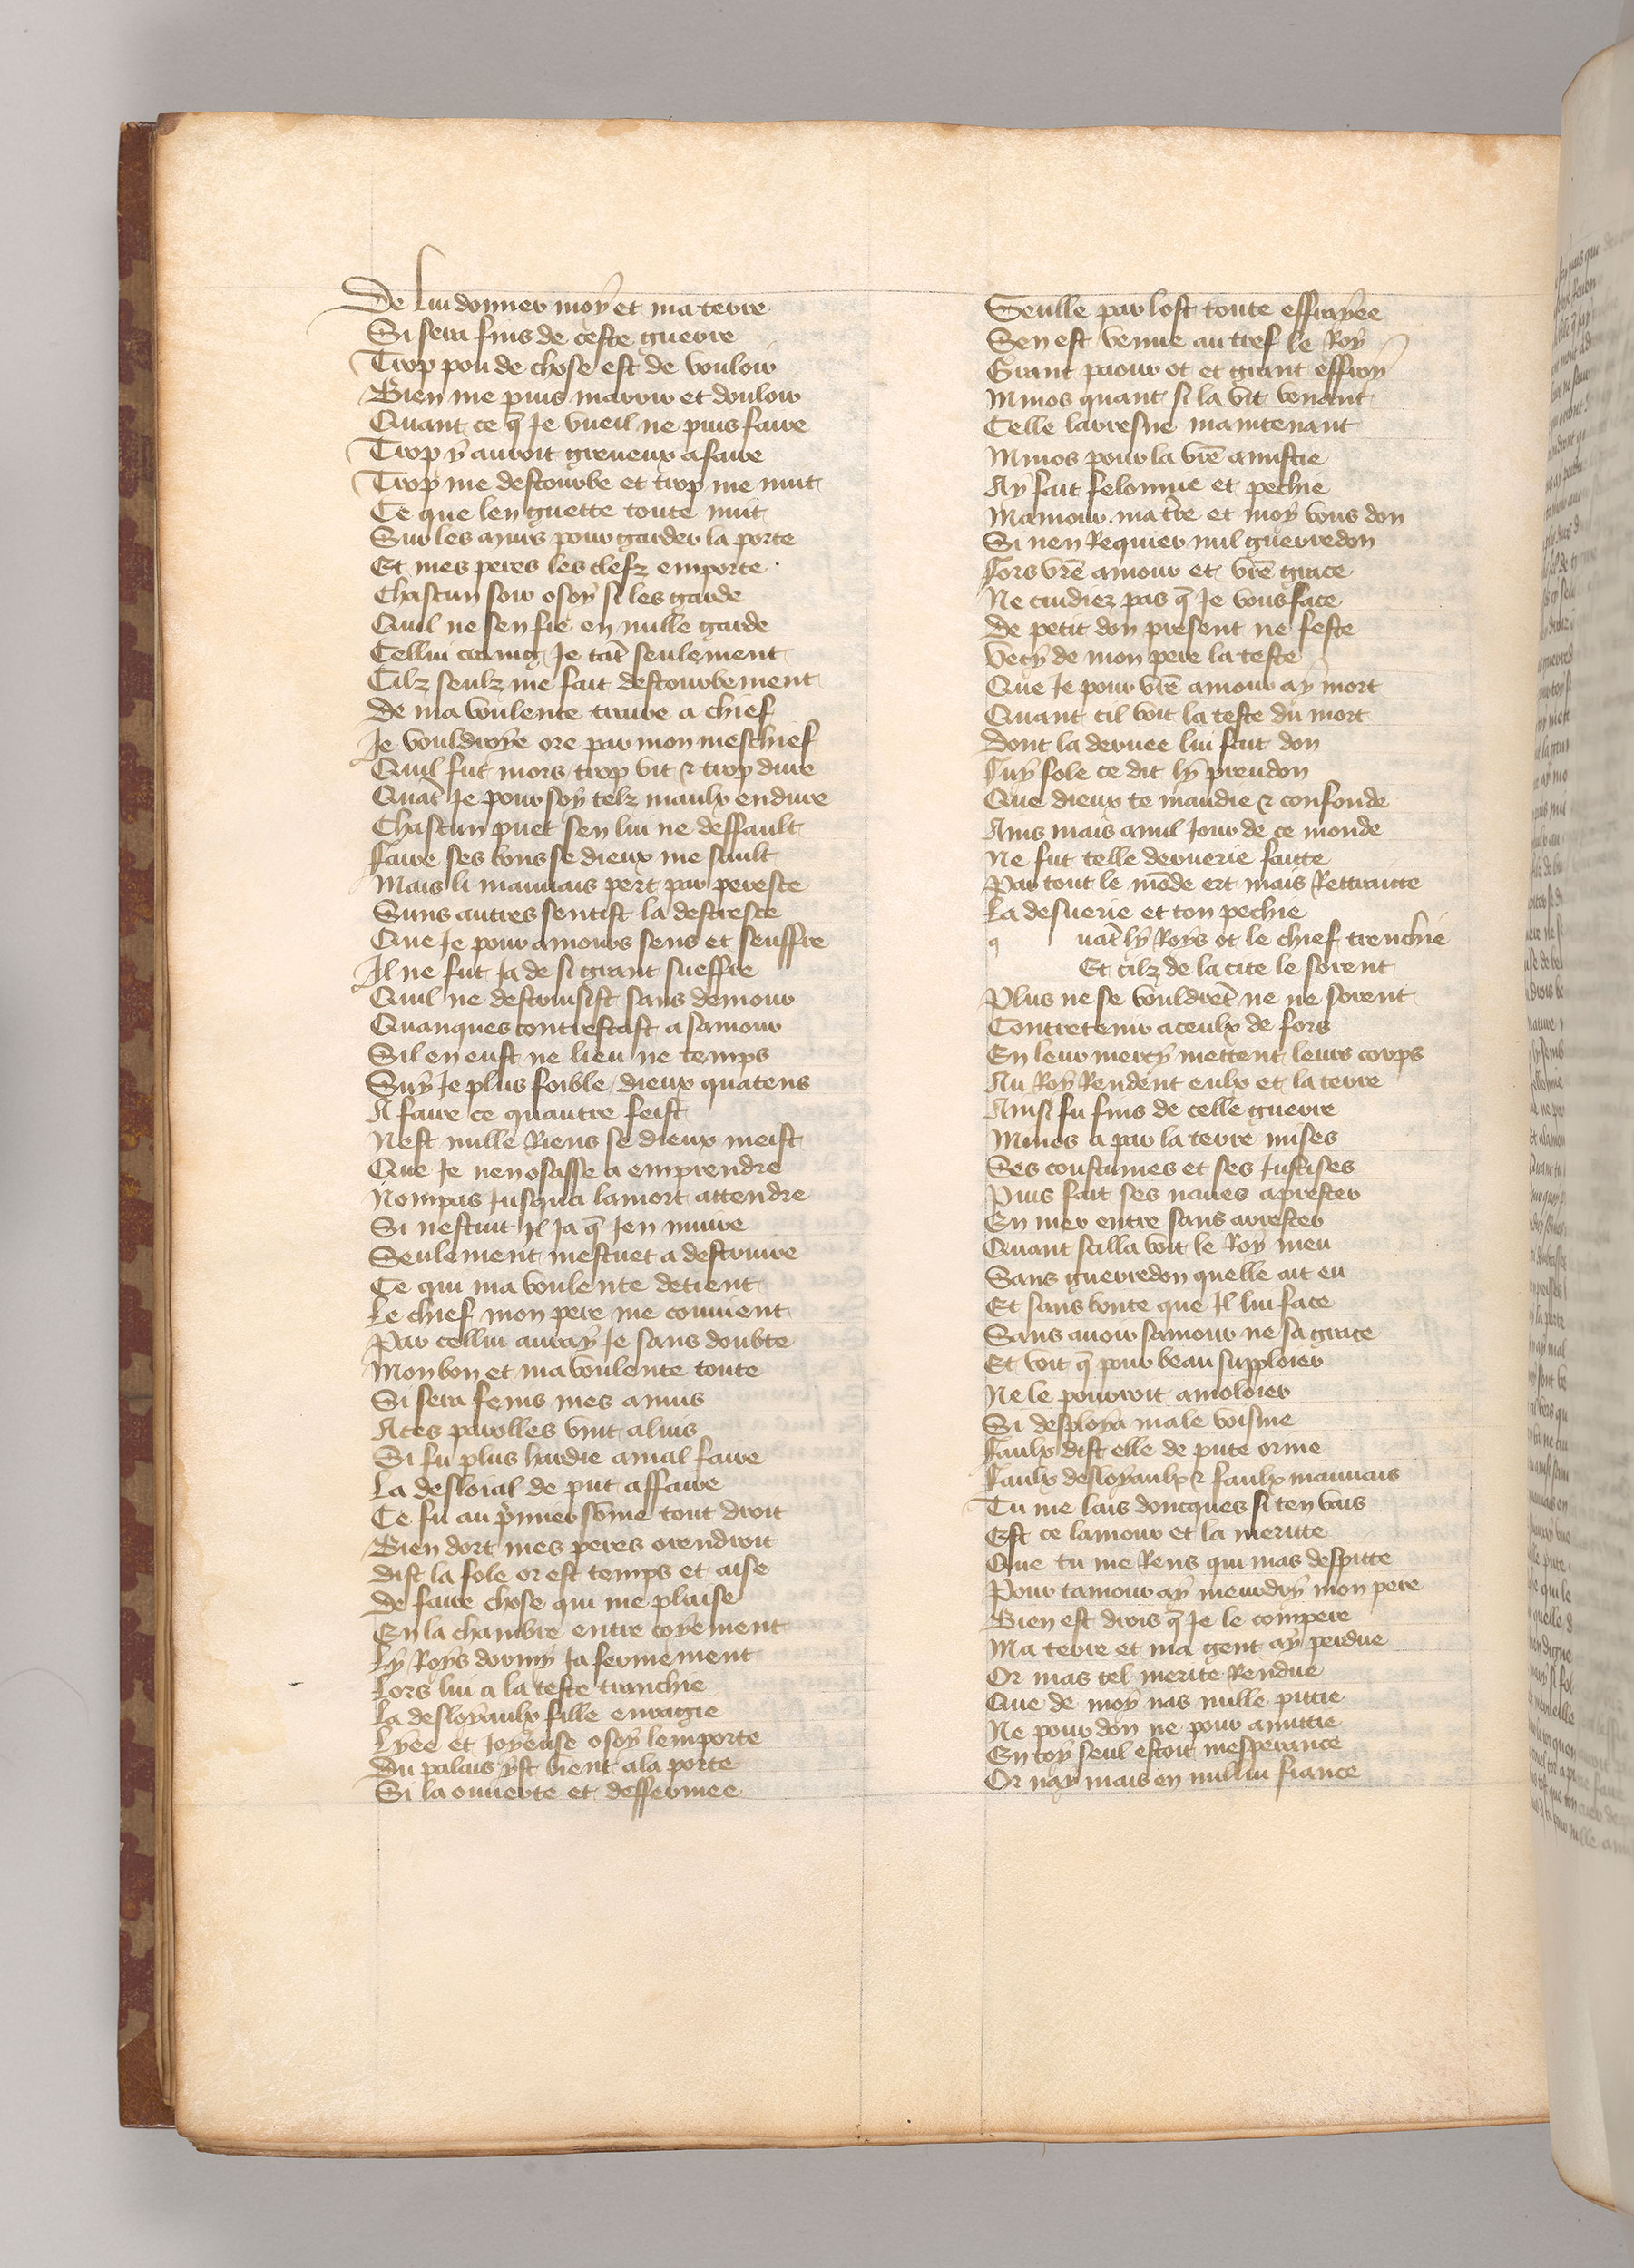 De lui donner moy et ma terre
Si sera fins de ceste guerre
Trop pou de chose est de vouloir
Bien me puis marrir et douloir
Quant ce q̄ Je vueil ne puis faire
Trop y auroit greueux afaire
Trop me destourbe et trop me nuit
Ce que len guette toute nuit
Sur les murs pour garder la porte
Et mes peres les clefz emporte
Chascun soir o soy si les garde
Quil ne sen fie en nulle garde
Cellui craing Je tāt seulement
Cilz seulz me fait destourbement
De ma voulente traire a chief
Je vouldroye ore par mon meschief
Quil fut mors trop vit & trop dure
Quāt Je pour soy telz maulx endure
Chascun puet sen lui ne deffault
Faire ses bons se dieux me sault
Mais li mauuais pert par pereste
Suns autres sentist la destresce
Que Je pour amours sens et seuffre
Il ne fut Ja de si grant sueffre
Quil ne destruisist sans demour
Quanques contrestast a samour
Sil en eust ne lieu ne temps
Suy Je plus foible dieux quatens
A faire ce quautre feist
Nest nulle Riens se dieux meist
Que Je nen osasse a emprendre
Nompas Jusqua lamort attendre
Si nestuit Il Ja q̄ Jen muire
Seulement mestuet a destruire
Ce qui ma voulente detient
Le chief mon pere me couuient
Par cellui auray Je sans doubte
Mon bon et ma voulente toute
Si sera fenis mes anuis
A tes parolles vint a luis
Si fu plus hardie a mal faire
La desloial de put affaire
Ce fu au p̄mier sōme tout droit
Bien dort mes peres orendroit
Dist la fole or est temps et aise
De faire chose qui me plaise
En la chambre entre coyement
Ly Roys dormy Ja fermement
Lors lui a la teste tranchie
La desloyaulx fille enragie
Lyee et Joyeuse o soy lemporte
Du palais yst vient ala porte
Si la ouuerte et deffermee
Seulle par lost toute effrayee
Sen est venue au tref le Roy
Grant paour ot et grant effroy
Minos quant si la vit venant
Celle larresne maintenant
Minos pour la vr̄e amistie
Ay fait felonnie et pechie
Mamour ma t̄re et moy vous don
Si nen Requier nul guerredon
Fors vr̄e amour et vr̄e grace
Ne cuidiez pas q̄ Je vous face
De petit don present ne feste
Vecy de mon pere la teste
Que Je pour vr̄e amour ay mort
Quant cil voit la teste du mort
Dont la deruee lui fait don
Fuy fole ce dit ly preudon
Que dieux te maudie & confonde
Ains mais a nul Jour de ce monde
Ne fut telle deruerie faitte
Par tout le mōde ert mais Rettraitte
La desuerie et ton pechie
q uāt ly Roys ot le chief trenchie
Et cilz de la cite le sorent
Plus ne se vouldrēt ne ne sorent
Contretenir a ceulx de fors
En leur mercy mettent leurs corps
Au Roy Rendent eulx et la terre
Ainsi fu fins de celle guerre
Minos a par la terre mises
Ses coustumes et ses Justises
Puis fait ses naues aprester
En mer entre sans arrester
Quant scilla voit le Roy meu
Sans guerredon quelle ait eu
Et sans bonte que Il lui face
Sans auoir samour ne sa grace
Et voit q̄ pour beau supploier
Ne le pourroit amoloier
Si desploya male voisine
Faulx dist elle de pute orine
Faulx desloyaulx & faulx mauuais
Tu me lais doncques si ten vais
Est ce lamour et la meritte
Que tu me Rens qui mas despitte
Pour tamour ay meurdry mon pere
Bien est drois q̄ Je le compere
Ma terre et ma gent ay perdue
Or mas tel merite Rendue
Que de moy nas nulle pitie
Ne pour don ne pour amittie
En toy seul estoit mesperance
Or nay mais en nullui fiance